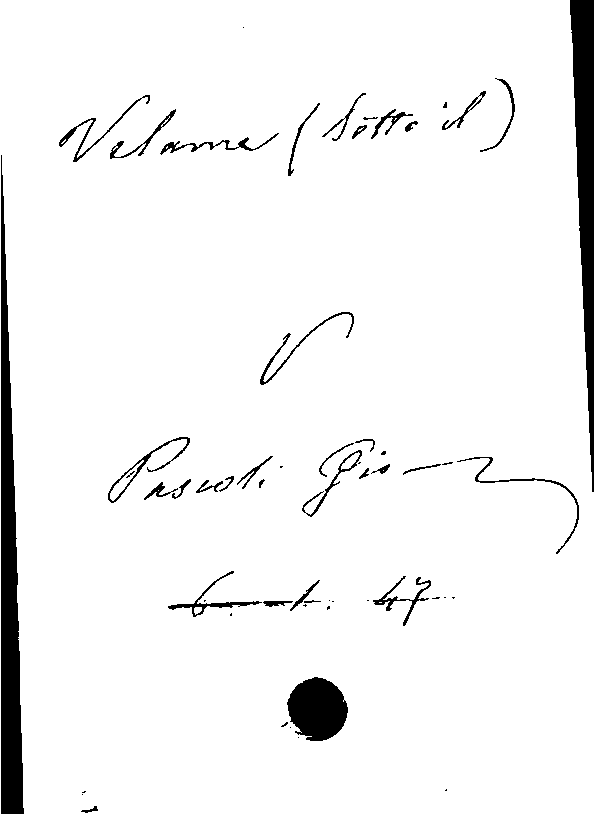 Velame (Sotto il)
V
Pascoli Gio
6. 1. 47